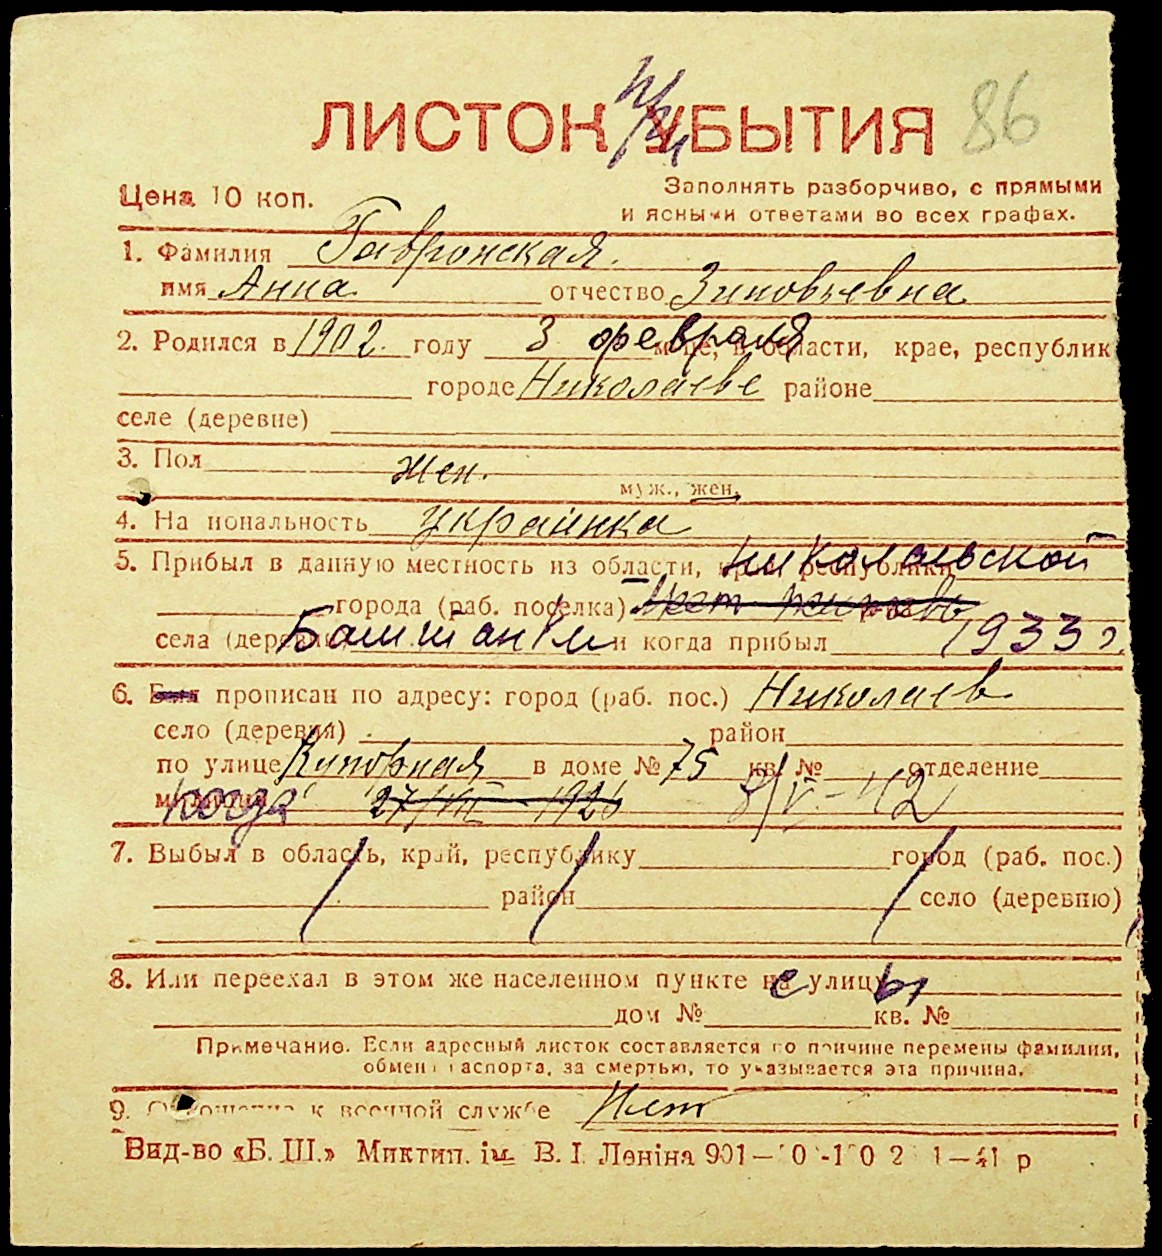 ЛИСТОК УБЫТИЯ 86
Цена 10 коп. Заполнять разборчиво, с прямыми
и ясными ответами во всех графах.
1. Фамилия Гавронская.
имя Анна отчество Зиновьевна
2. Родился в 1902. году 3 февраля м-це, в области, крае, республик
городе Николаеве районе
селе (деревне)
3. Пол жен.
муж., жен.
4. На иональность украинка
5. Прибыл в данную местность из области, края республики Николаевской
города (раб. поселка)
села (деревни) и когда прибыл 1933 г.
6. Был прописан по адресу: город (раб. пос.) Николаев
село (деревня) район
по улице в доме № 75 кв. № отделение
милиции когда 8/V-42
7. Выбыл в область, край, республику город (раб. пос.)
район село (деревню)
8. Или переехал в этом же населенном пункте на с улицы
дом № кв. №
Примечание. Если адресный листок составляется по причине перемены фамилии,
обмена паспорта, за смертью, то указывается эта причина.
9. Отношение к военной службе Нет
Вид-во «Б. Ш.» Миктип. ім. В. І. Леніна